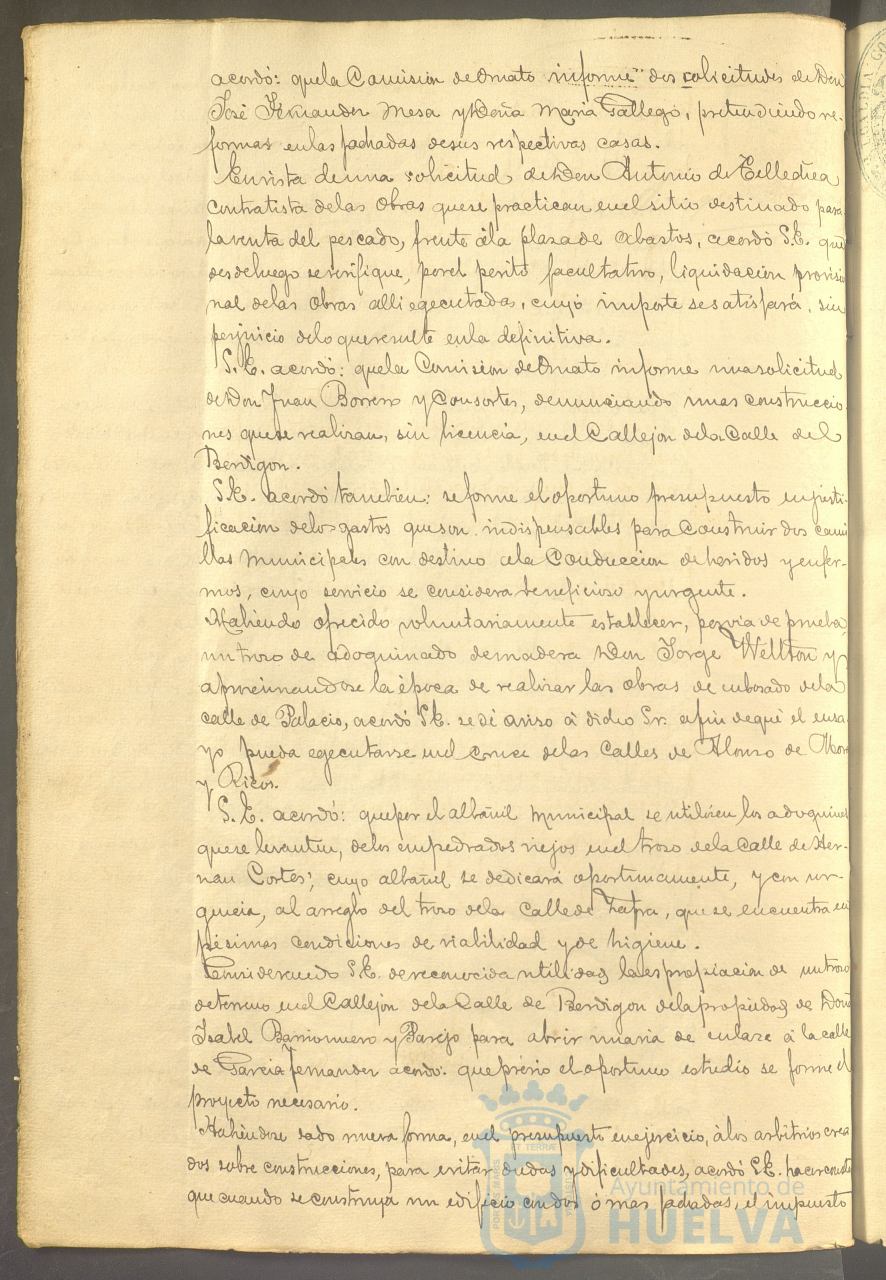 acordó: que la Comision de Ornato informe dos solicitudes de Don
José Fernandez Mesa y Doña Maria Gallego, pretendiendo re-
formas en las fachadas de sus respectivas casas.
En vista de una solicitud de Don Antonio de
contratista de las obras que se practican en el sitio destinado para
la venta del pescado, frente á la plaza de Abastos, acordó S.E. que
desde luego se verifique, por el perito facultativo, liquidacion provisio
nal de las obras alli egecutadas, cuyo importe se satisfará, sin
perjuicio de lo que resulte en la definitiva.
S.E. acordó: que la Comision de Ornato informe una solicitud
de Don Juan Borrero y Consortes, denunciando unas construccio-
nes que se realizan, sin licencia, en el Callejon de la Calle del
Berdigon.
S.E. acordó tambien: se forme el oportuno presupuesto en justi-
ficacion de los gastos que son indispensables para construir dos cami
llas municipales con destino a la Conduccion de heridos y enfer-
mos, cuyo servicio se considera beneficioso y urgente.
Habiendo ofrecido voluntariamente establecer, por via de prueba,
un trozo de adoquinado de madera Don Jorge Wellton y
aproximandose la época de realizar las obras de enlosado de la
calle de Palacio, acordó S.E. se dé aviso á dicho Sr. a fin de que el ensa-
yo pueda egecutarse en el cruce de las Calles de Alonso de Mora
y Ricos.
S.E. acordó: que por el albañil municipal se utilicen los adoquines
que se levanten, de los empedrados viejos en el trozo de la Calle de Her-
nan Cortes; cuyo albañil se dedicará oportunamente, y con ur-
gencia, al arreglo del trozo de la calle de Zafra, que se encuentra en
pésimas condiciones de viabilidad y de higiene.
Considerando S.E. de reconocida utilidad la espropiacion de un trozo
de terreno en el Callejon de la Calle de Berdigon de la propiedad de Doña
Isabel Barrionuevo y Parejo para abrir una via de enlace á la calle
de Garcia Fernandez acordó: que prévio el oportuno estudio se forme el
proyecto necesario.
Habiéndose dado nueva forma, en el presupuesto en ejercicio, á los arbitrios crea
dos sobre construcciones, para evitar dudas y dificultades, acordó S.E. hacer constar
que cuando se construya un edificio con dos ó mas fachadas, el impuesto
Ayuntamiento de
HUELVA